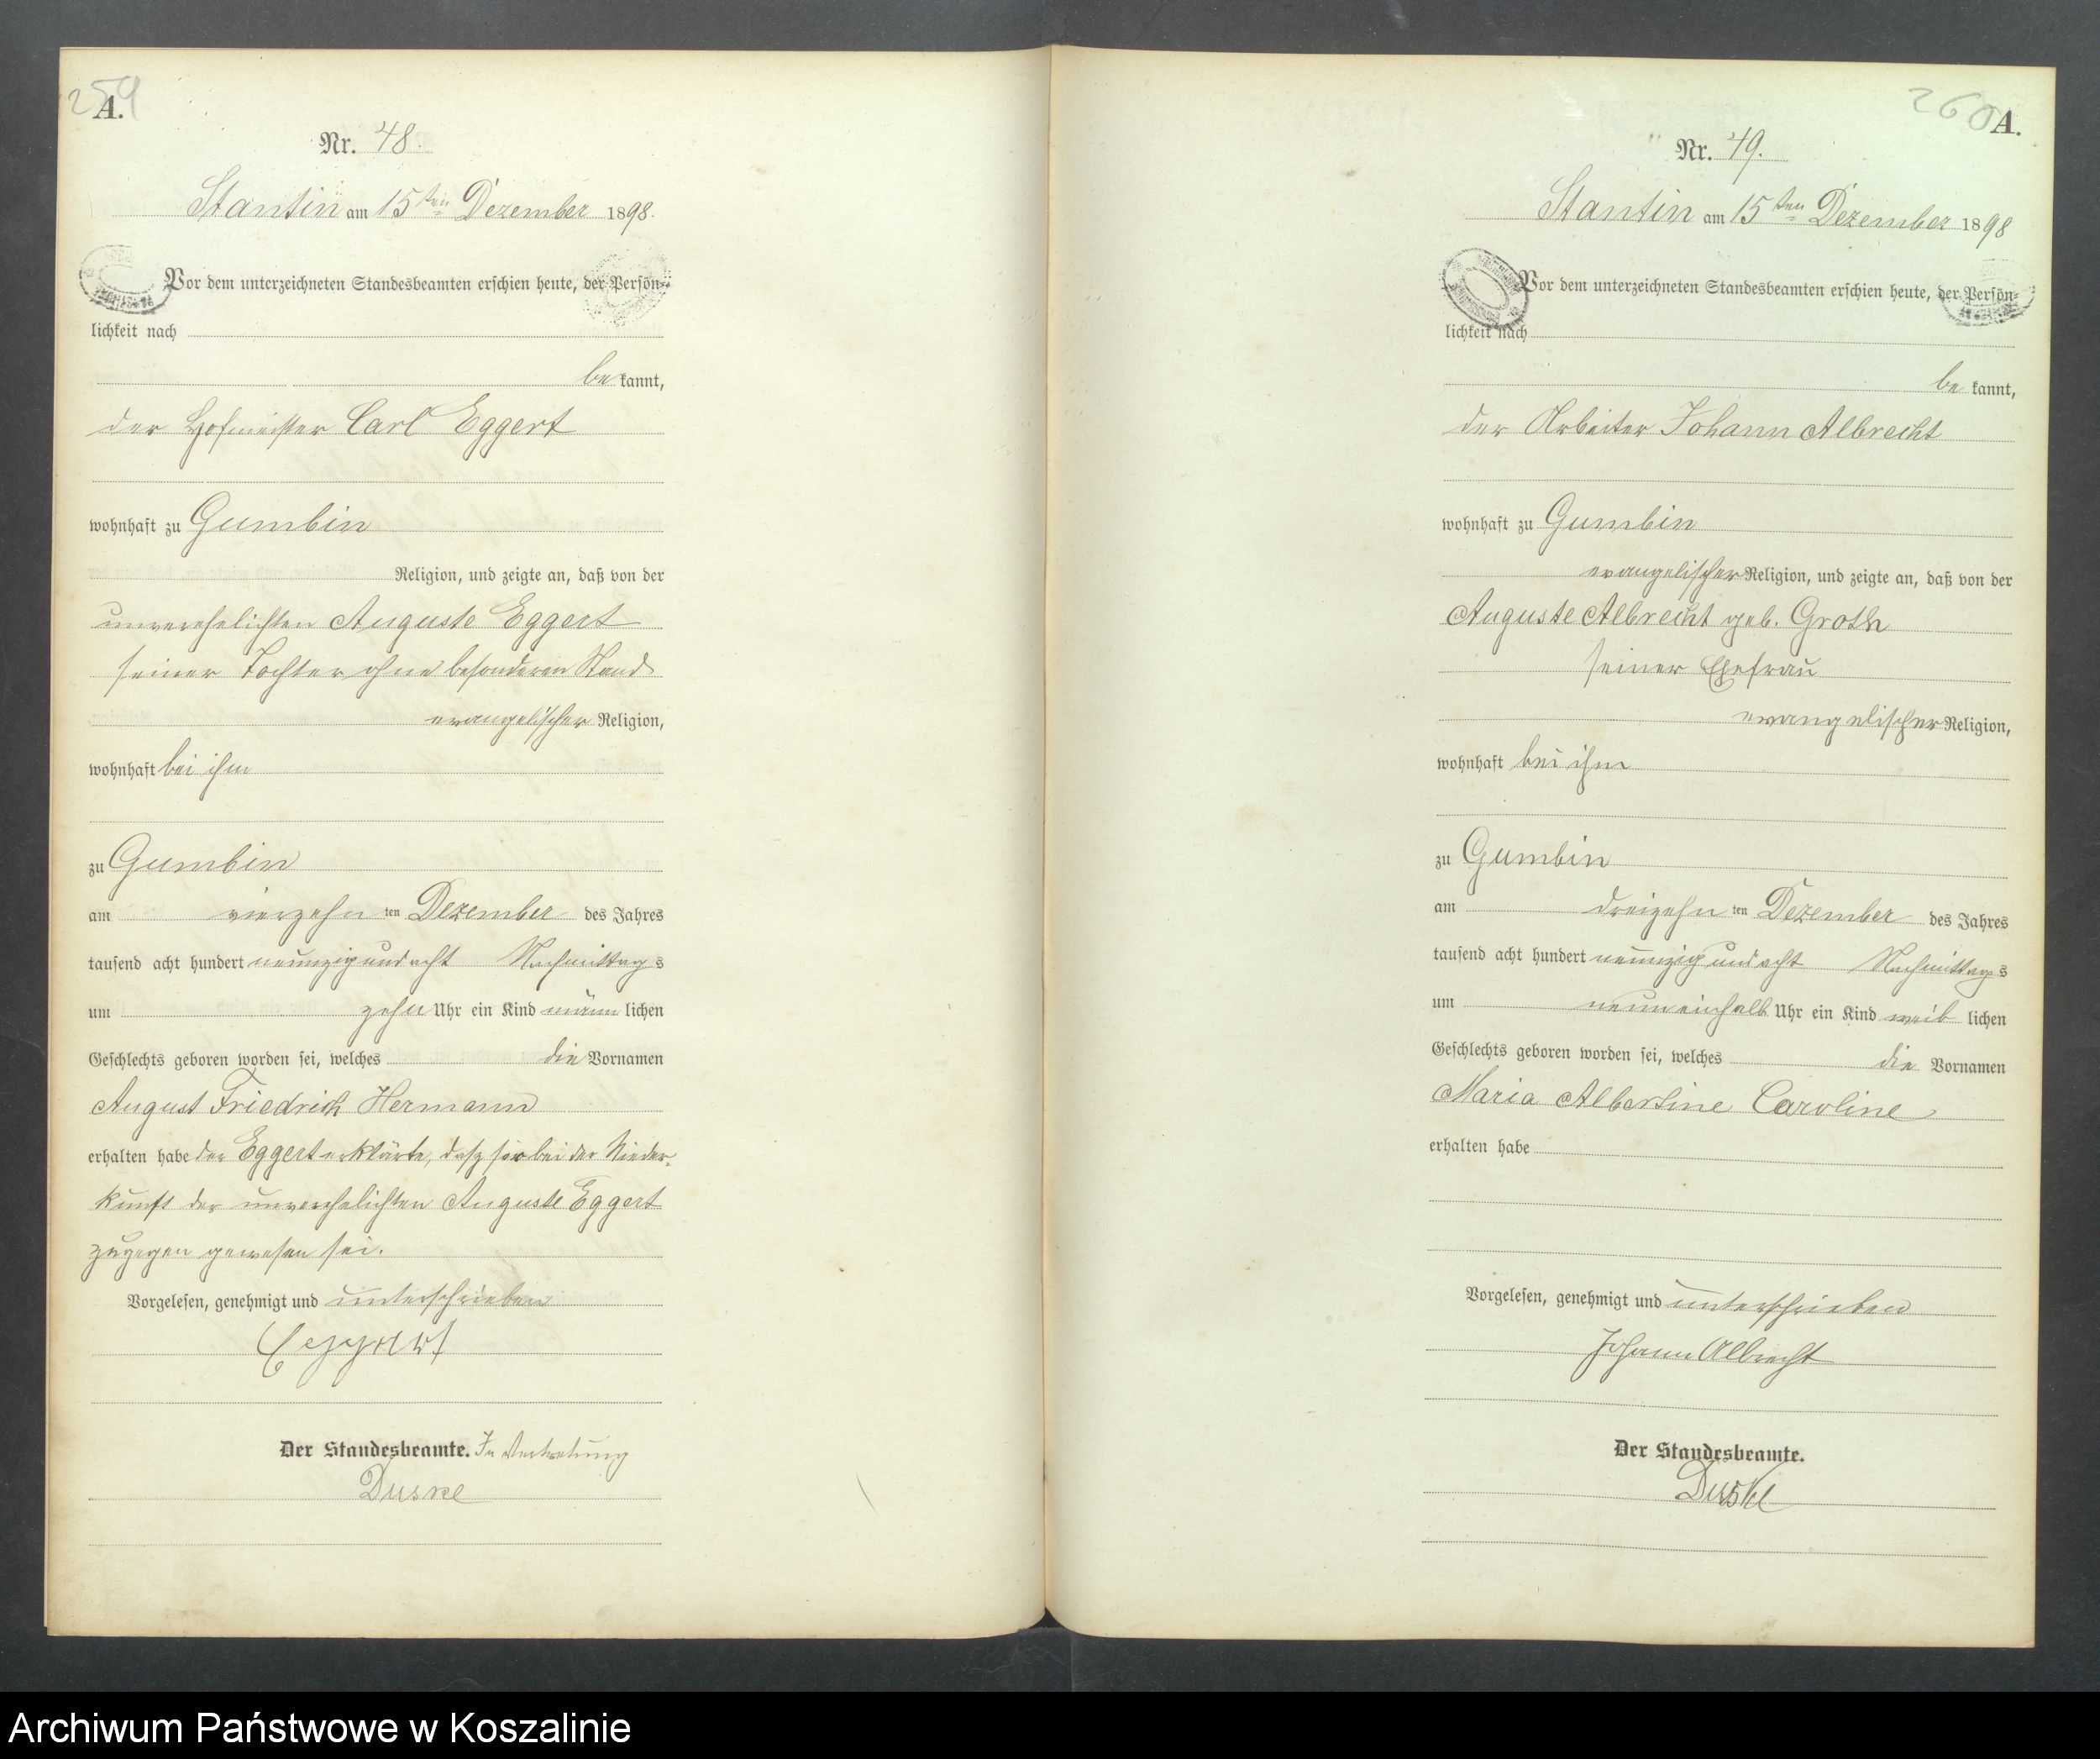 259
A.
Nr. 48.
Stantin am 15ten Dezember 1898.
Vor dem unterzeichneten Standesbeamten erschien heute, der Persön-
lichkeit nach
bekannt,
der Hofmeister Carl Eggert
wohnhaft zu Gumbin
Religion, und zeigte an, daß von der
unverehelichten Auguste Eggert
seiner Tochter ohne besonderen Stand
evangelischer Religion,
wohnhaft bei ihm
zu Gumbin
am vierzehnten Dezember des Jahres
tausend acht hundert neunzig und acht Nachmittags
um zehn Uhr ein Kind männlichen
Geschlechts geboren worden sei, welches die Vornamen
August Friedrich Hermann
erhalten habe der Eggert erklärte, daß er bei der Nieder-
kunft der unverehelichten Auguste Eggert
zugegen gewesen sei.
Vorgelesen, genehmigt und unterschrieben
Der Standesbeamte. In Vertretung
Duske
260
A.
Nr. 49.
Stantin am 15ten Dezember 1898
Vor dem unterzeichneten Standesbeamten erschien heute, der Persön-
lichkeit nach
be kannt,
der Arbeiter Johann Albrecht
wohnhaft zu Gumbin
evangelischer Religion, und zeigte an, daß von der
Auguste Albrecht geb. Groth
seiner Ehefrau
evangelischer Religion,
wohnhaft bei ihm
zu Gumbin
am dreizehnten Dezember des Jahres
tausend acht hundert neunzig und acht Nachmittags
um neuneinhalb Uhr ein Kind weib lichen
Geschlechts geboren worden sei, welches die Vornamen
Maria Albertine Caroline
erhalten habe
Vorgelesen, genehmigt und unterschrieben
Johann Albrecht
Der Standesbeamte.
Duske
Archiwum Państwowe w Koszalinie